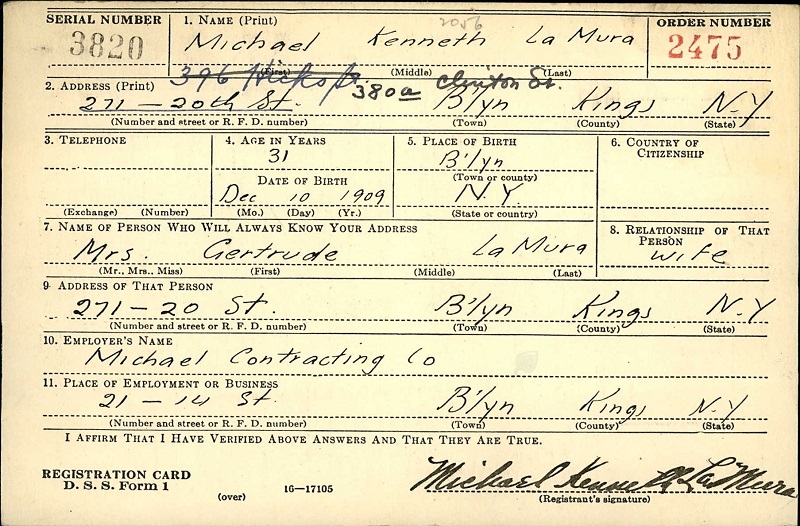 SERIAL NUMBER 1. NAME (Print) 2056 ORDER NUMBER
3820 Michael Kenneth La Mura 2475
(First) (Middle) (Last)
396 Hicks St. 380a Clinton St.
2. ADDRESS (Print)
271 — 20th St. B'lyn Kings N.Y
(Number and street or R. F. D. number) (Town) (County) (State)
3. TELEPHONE 4. AGE IN YEARS 5. PLACE OF BIRTH 6. COUNTRY OF CITIZENSHIP
31 B'lyn
(Town or county)
DATE OF BIRTH N.Y.
Dec 10 1909
(Exchange) (Number) (Mo.) (Day) (Yr.) (State or country)
7. NAME OF PERSON WHO WILL ALWAYS KNOW YOUR ADDRESS 8. RELATIONSHIP OF THAT PERSON
Mrs. Gertrude La Mura wife
(Mr., Mrs., Miss) (First) (Middle) (Last)
9 ADDRESS OF THAT PERSON
271 — 20 St. B'lyn Kings N.Y
(Number and street or R. F. D. number) (Town) (County) (State)
10. EMPLOYER'S NAME
Michael Contracting Co
11. PLACE OF EMPLOYMENT OR BUSINESS
21 — 14 St. B'lyn Kings N.Y
(Number and street or R. F. D. number) (Town) (County) (State)
I AFFIRM THAT I HAVE VERIFIED ABOVE ANSWERS AND THAT THEY ARE TRUE.
REGISTRATION CARD
D. S. S. Form 1 (over) 16—17105 Michael Kenneth La Mura
(Registrant's signature)